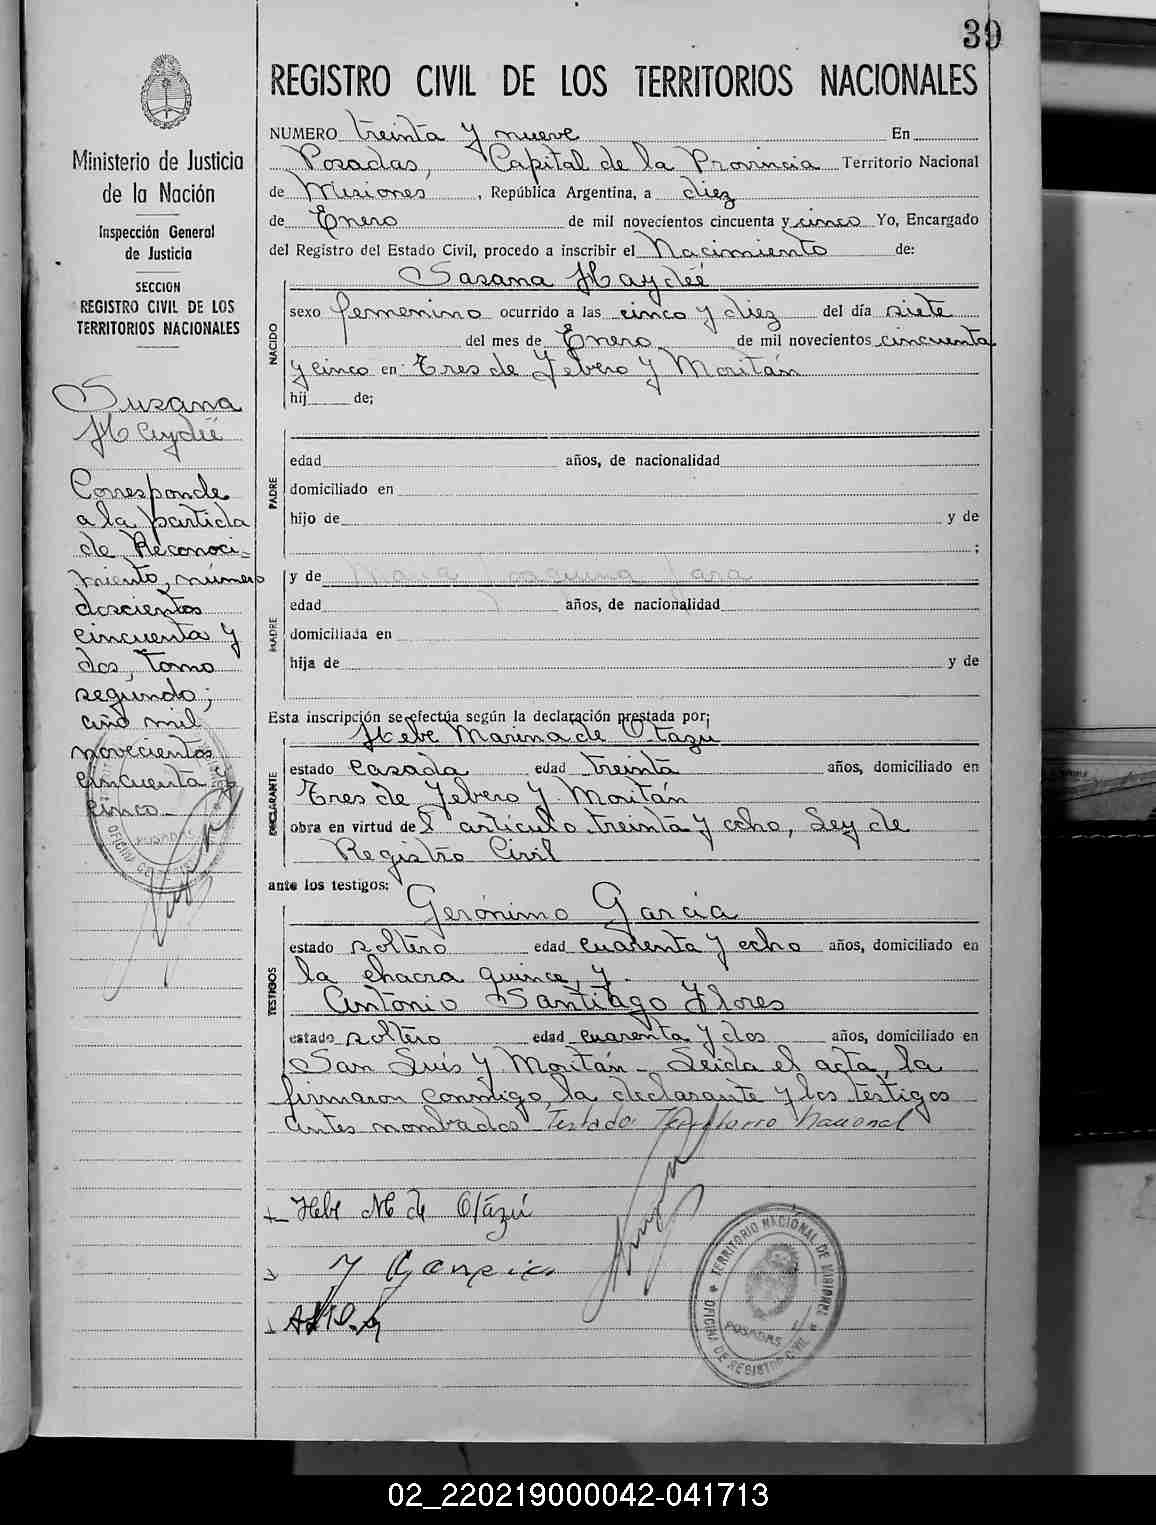 39
REGISTRO CIVIL DE LOS TERRITORIOS NACIONALES
Ministerio de Justicia
de la Nación
Inspección General
de Justicia
SECCION
REGISTRO CIVIL DE LOS
TERRITORIOS NACIONALES
Susana
Haydée
Corresponde
a la partida
de Reconoci-
miento, número
doscientos
cincuenta y
dos, tomo
segundo;
año mil
novecientos
cincuenta y
cinco.-
NUMERO treinta y nueve En
Posadas, Capital de la Provincia Territorio Nacional
de Misiones, República Argentina, a diez
de Enero de mil novecientos cincuenta y cinco Yo, Encargado
del Registro del Estado Civil, procedo a inscribir el Nacimiento de:
Susana Haydée
NACIDO
sexo femenino ocurrido a las cinco y diez del día siete
del mes de Enero de mil novecientos cincuenta
y cinco en: Tres de Febrero y Moritán
hij de;
PADRE
edad años, de nacionalidad
domiciliado en
hijo de y de
;
MADRE
y de María Joaquina Jara
edad años, de nacionalidad
domiciliada en
hija de y de
Esta inscripción se efectúa según la declaración prestada por;
Hebe Marina de Otazú
DECLARANTE
estado casada edad treinta años, domiciliado en
Tres de Febrero y Moritán
obra en virtud del artículo treinta y ocho, Ley de
Registro Civil
ante los testigos:
Gerónimo García
TESTIGOS
estado soltero edad cuarenta y ocho años, domiciliado en
la chacra quince, y.
Antonio Santiago Flores
estado soltero edad cuarenta y dos años, domiciliado en
San Luis y Moritán - Leida el acta, la
firmaron conmigo, la declarante y los testigos
antes nombrados Testado: Territorio Nacional
Hebe M de Otazú
TERRITORIO NACIONAL DE MISIONES
POSADAS
OFICINA DE REGISTRO CIVIL
02_220219000042-041713